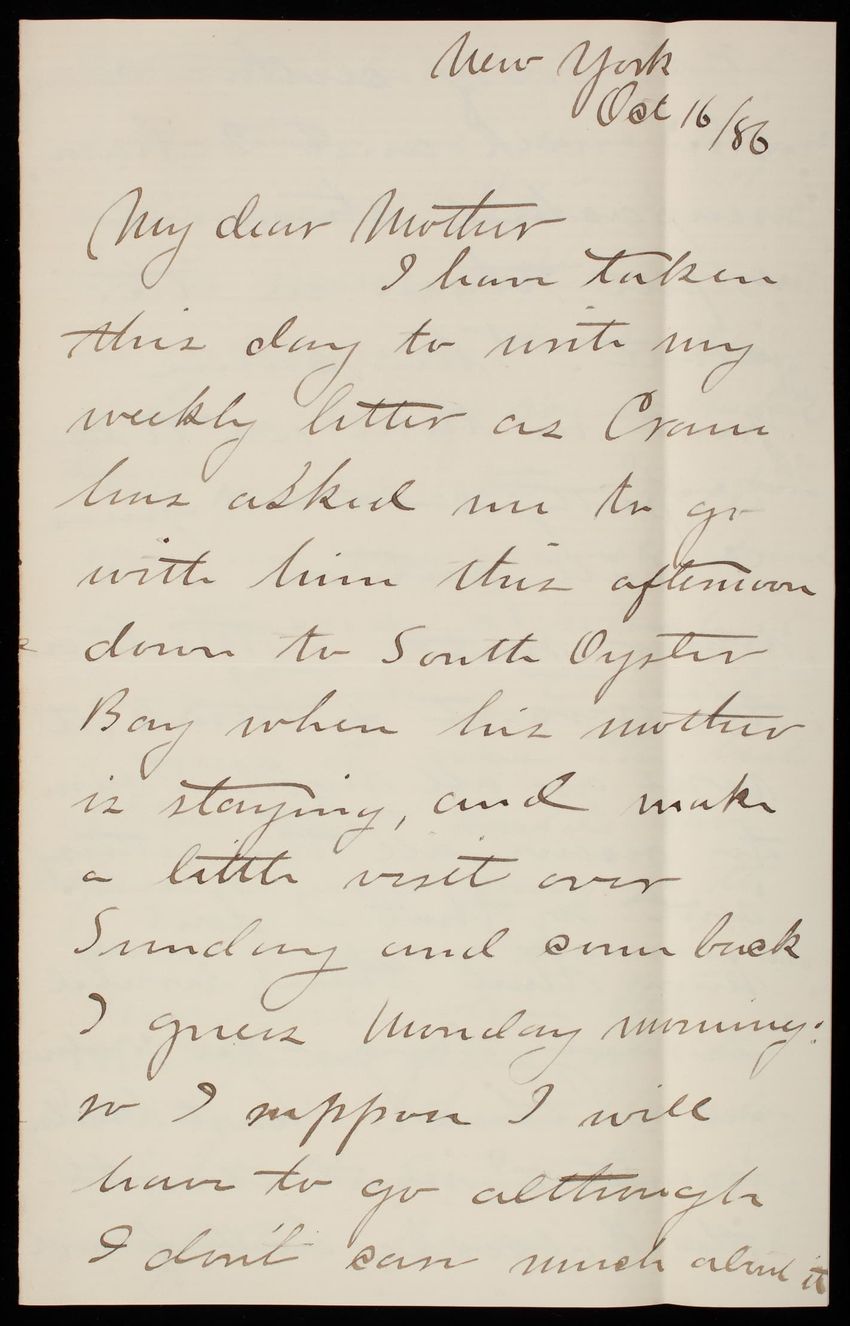 New York
Oct 16/86
My dear Mother
I have taken
this day to write my
weekly letter as Crane
has asked me to go
with him this afternoon
down to South Oyster
Bay where his mother
is staying, and make
a little visit over
Sunday and come back
I guess Monday morning:
so I suppose I will
have to go although
I don't care much about it